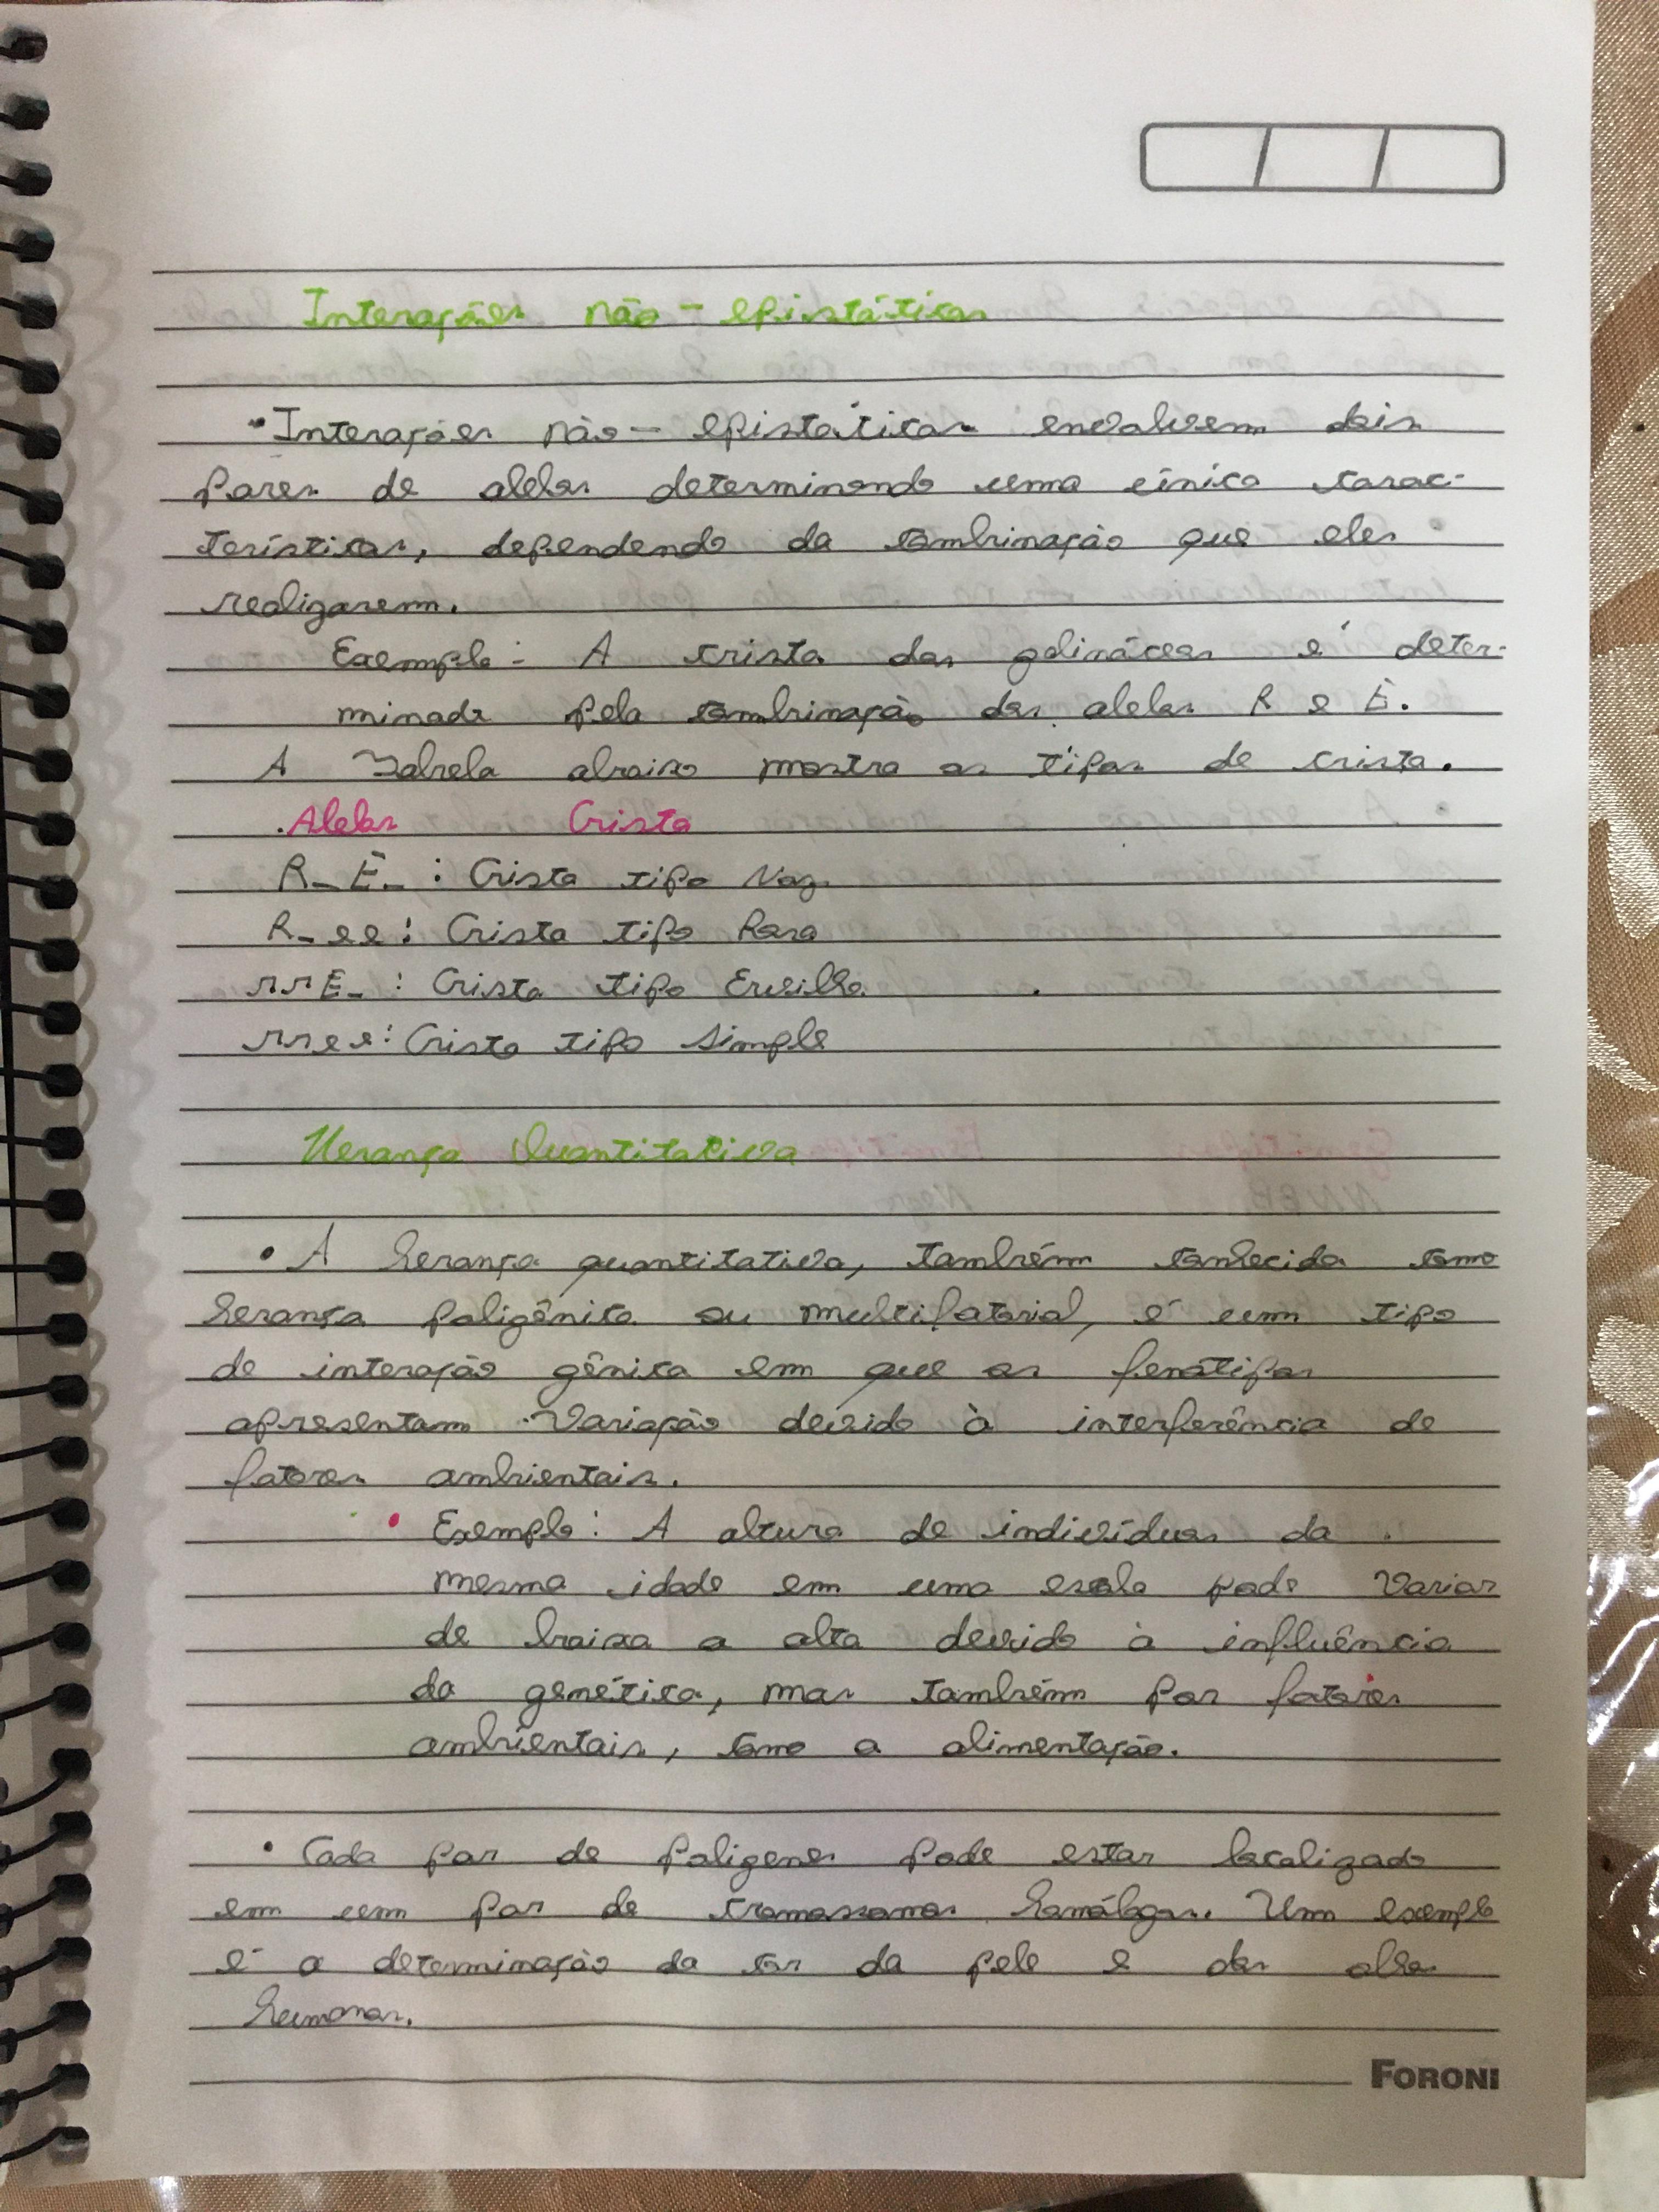 Interações não-epistáticas
• Interações não-epistáticas envolvem dois
pares de alelos determinando uma única carac-
terísticas, dependendo da combinação que eles
realizarem.
Exemplo: A crista dos galináceos é deter-
minada pela combinação dos alelos R e E.
A Tabela abaixo mostra os tipos de crista.
Alelos Crista
R_E_: Crista tipo Noz
R_ee: Crista tipo Rosa
rrE_: Crista tipo Ervilha
rree: Crista tipo Simple
Herança Quantitativa
• A herança quantitativa, também conhecida como
herança poligênica ou multifatorial, é um tipo
de interação gênica em que os fenótipos
apresentam variação devido à interferência de
fatores ambientais.
• Exemplo: A altura de indivíduos da
mesma idade em uma escola pode variar
de baixa a alta devido à influência
da genética, mas também por fatores
ambientais, como a alimentação.
• Cada par de poligenes pode estar localizado
em um par de cromossomos homólogos. Um exemplo
é a determinação da cor da pele e dos olhos
humanos.
FORONI